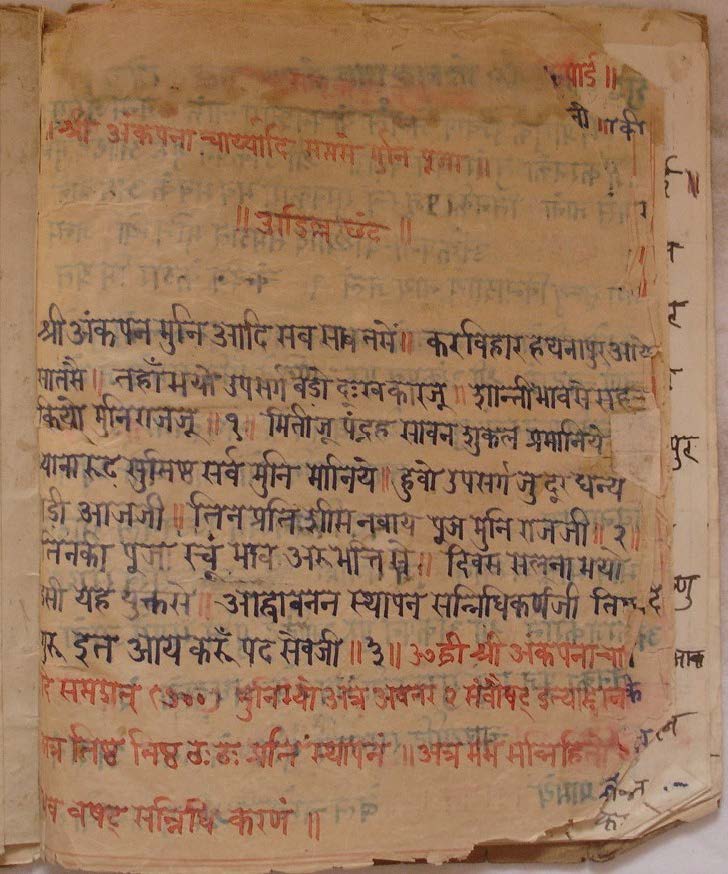 पाई॥
नी॥ की
।श्री अंकपना चार्य्यादि समस मुनि पूजा॥
॥ अडिल्ल छंद ॥
श्री अंकपन मुनि आदि सब सात सें॥ कर विहार हथनापुर आये
सातसै॥ तहाँ भयो उपसर्ग बडो दुःखकारजू॥ शान्तीभावसे सह
कियो मुनिराजजू॥१॥ मितीजू पंद्रह सावन शुकल प्रमानिये
ध्यानारूढ सुतिष्ठ सर्व मुनि मानिये॥ हुवो उपसर्ग जु दूर धन्य
डी आजजी॥ तिने प्रति शीस नवाय पूज मुनिराजजी॥२॥
तिनकी पूजा रचूं भाव अरु भक्ति से॥ दिवस सलूना भयो
उसी येह युक्तसे॥ आह्वाननेन स्थापन सन्निधिकर्णजी
गुरू इत आय करूँ पद सेवजी॥३॥ ॐ ह्री श्री अंकपनाचा
दि समस्त (७००) मुनिभ्यो अत्र अवतर २ संवौषट् इत्याह्वानन
अत्र तिष्ठ तिष्ठ ठः ठः प्रति स्थापनं॥ अत्र मम सन्निहितो
भव वषट् सन्निधि करणं॥